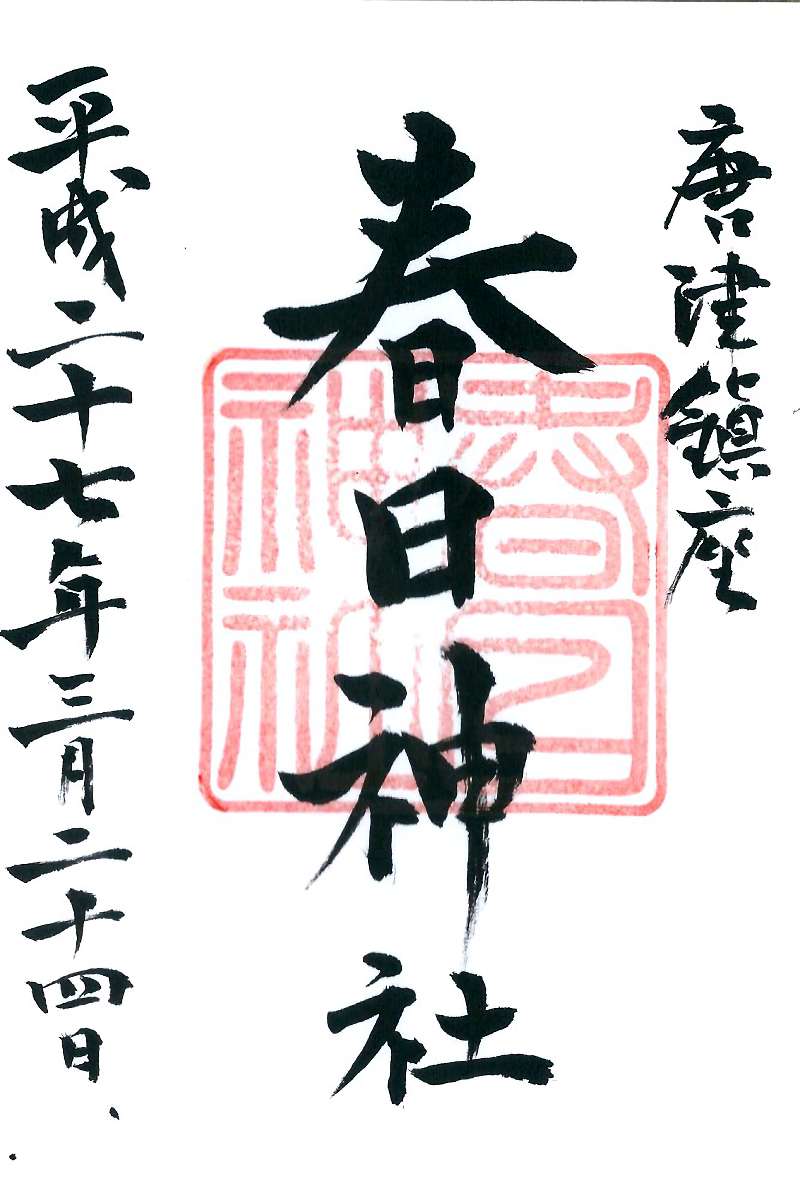 唐津鎮座
春日神社
春日
神社
平成二十七年三月二十四日、